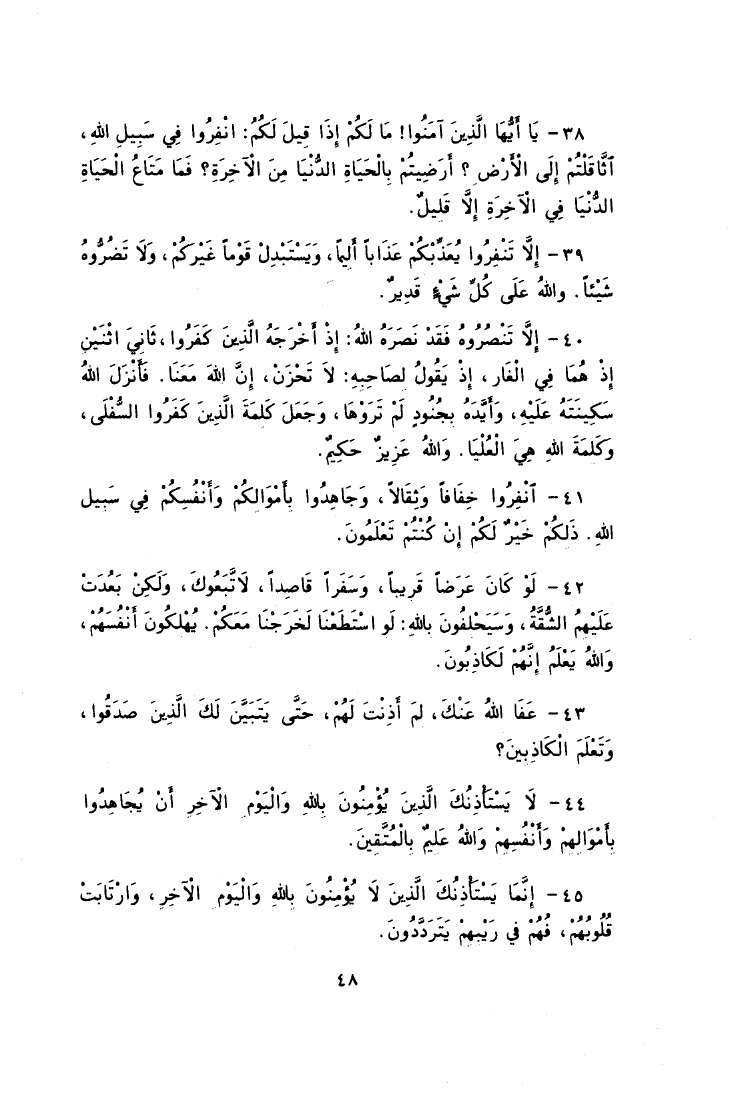 ٣٨ - يَا أَيُّهَا الَّذِينَ آمَنُوا! مَا لَكُمْ إِذَا قِيلَ لَكُمُ: انْفِرُوا فِي سَبِيلِ اللهِ،
اَثَّاقَلْتُمْ إِلَى الْأَرْضِ ؟ أَرَضِيتُمْ بِالْحَيَاةِ الدُّنْيَا مِنَ الْآخِرَةِ؟ فَمَا مَتَاعُ الْحَيَاةِ
الدُّنْيَا فِي الْآخِرَةِ إِلَّا قَلِيلٌ.
٣٩ - إِلَّا تَنْفِرُوا يُعَذِّبْكُمْ عَذَاباً أَلِيماً، وَيَسْتَبْدِلْ قَوْماً غَيْرَكُمْ، وَلَا تَضُرُّوهُ
شَيْئاً. واللهُ عَلَى كُلِّ شَيْءٍ قَدِيرٌ.
٤٠ - إِلَّا تَنْصُرُوهُ فَقَدْ نَصَرَهُ اللهُ: إِذْ أَخْرَجَهُ الَّذِينَ كَفَرُوا، ثَانِيَ اثْنَيْنِ
إِذْ هُمَا فِي الْغَارِ، إِذْ يَقُولُ لِصَاحِبِهِ: لاَ تَحْزَنْ، إِنَّ اللهَ مَعَنَا. فَأَنْزَلَ اللهُ
سَكِينَتَهُ عَلَيْهِ، وَأَيَّدَهُ بِجُنُودٍ لَمْ تَرَوْهَا، وَجَعَلَ كَلِمَةَ الَّذِينَ كَفَرُوا السُّفْلَى،
وَكَلِمَةَ اللهِ هِيَ الْعُلْيَا. وَاللهُ عَزِيزٌ حَكِيمٌ.
٤١ - اَنْفِرُوا خِفَافاً وَثِقَالاً، وَجَاهِدُوا بِأَمْوَالِكُمْ وَأَنْفُسِكُمْ فِي سَبِيلِ
اللهِ. ذَلِكُمْ خَيْرٌ لَكُمْ إِنْ كُنْتُمْ تَعْلَمُونَ.
٤٢ - لَوْ كَانَ عَرَضاً قَرِيباً، وَسَفَراً قَاصِداً، لَاتَّبَعُوكَ، وَلَكِنْ بَعُدَتْ
عَلَيْهِمُ الشُّقَّةُ، وَسَيَحْلِفُونَ بِاللهِ: لَوِ اسْتَطَعْنَا لَخَرَجْنَا مَعَكُمْ. يُهْلِكُونَ أَنْفُسَهُمْ،
وَاللهُ يَعْلَمُ إِنَّهُمْ لَكَاذِبُونَ.
٤٣ - عَفَا اللهُ عَنْكَ، لِمَ أَذِنْتَ لَهُمْ، حَتَّى يَتَبَيَّنَ لَكَ الَّذِينَ صَدَقُوا،
وَتَعْلَمَ الْكَاذِبِينَ؟
٤٤ - لَا يَسْتَأْذِنُكَ الَّذِينَ يُؤْمِنُونَ بِاللهِ وَالْيَوْمِ الْآخِرِ أَنْ يُجَاهِدُوا
بِأَمْوَالِهِمْ وَأَنْفُسِهِمْ وَاللهُ عَلِيمٌ بِالْمُتَّقِينَ.
٤٥ - إِنَّمَا يَسْتَأْذِنُكَ الَّذِينَ لَا يُؤْمِنُونَ بِاللهِ وَالْيَوْمِ الْآخِرِ، وَارْتَابَتْ
قُلُوبُهُمْ، فَهُمْ فِي رَيْبِهِمْ يَتَرَدَّدُونَ.
٤٨